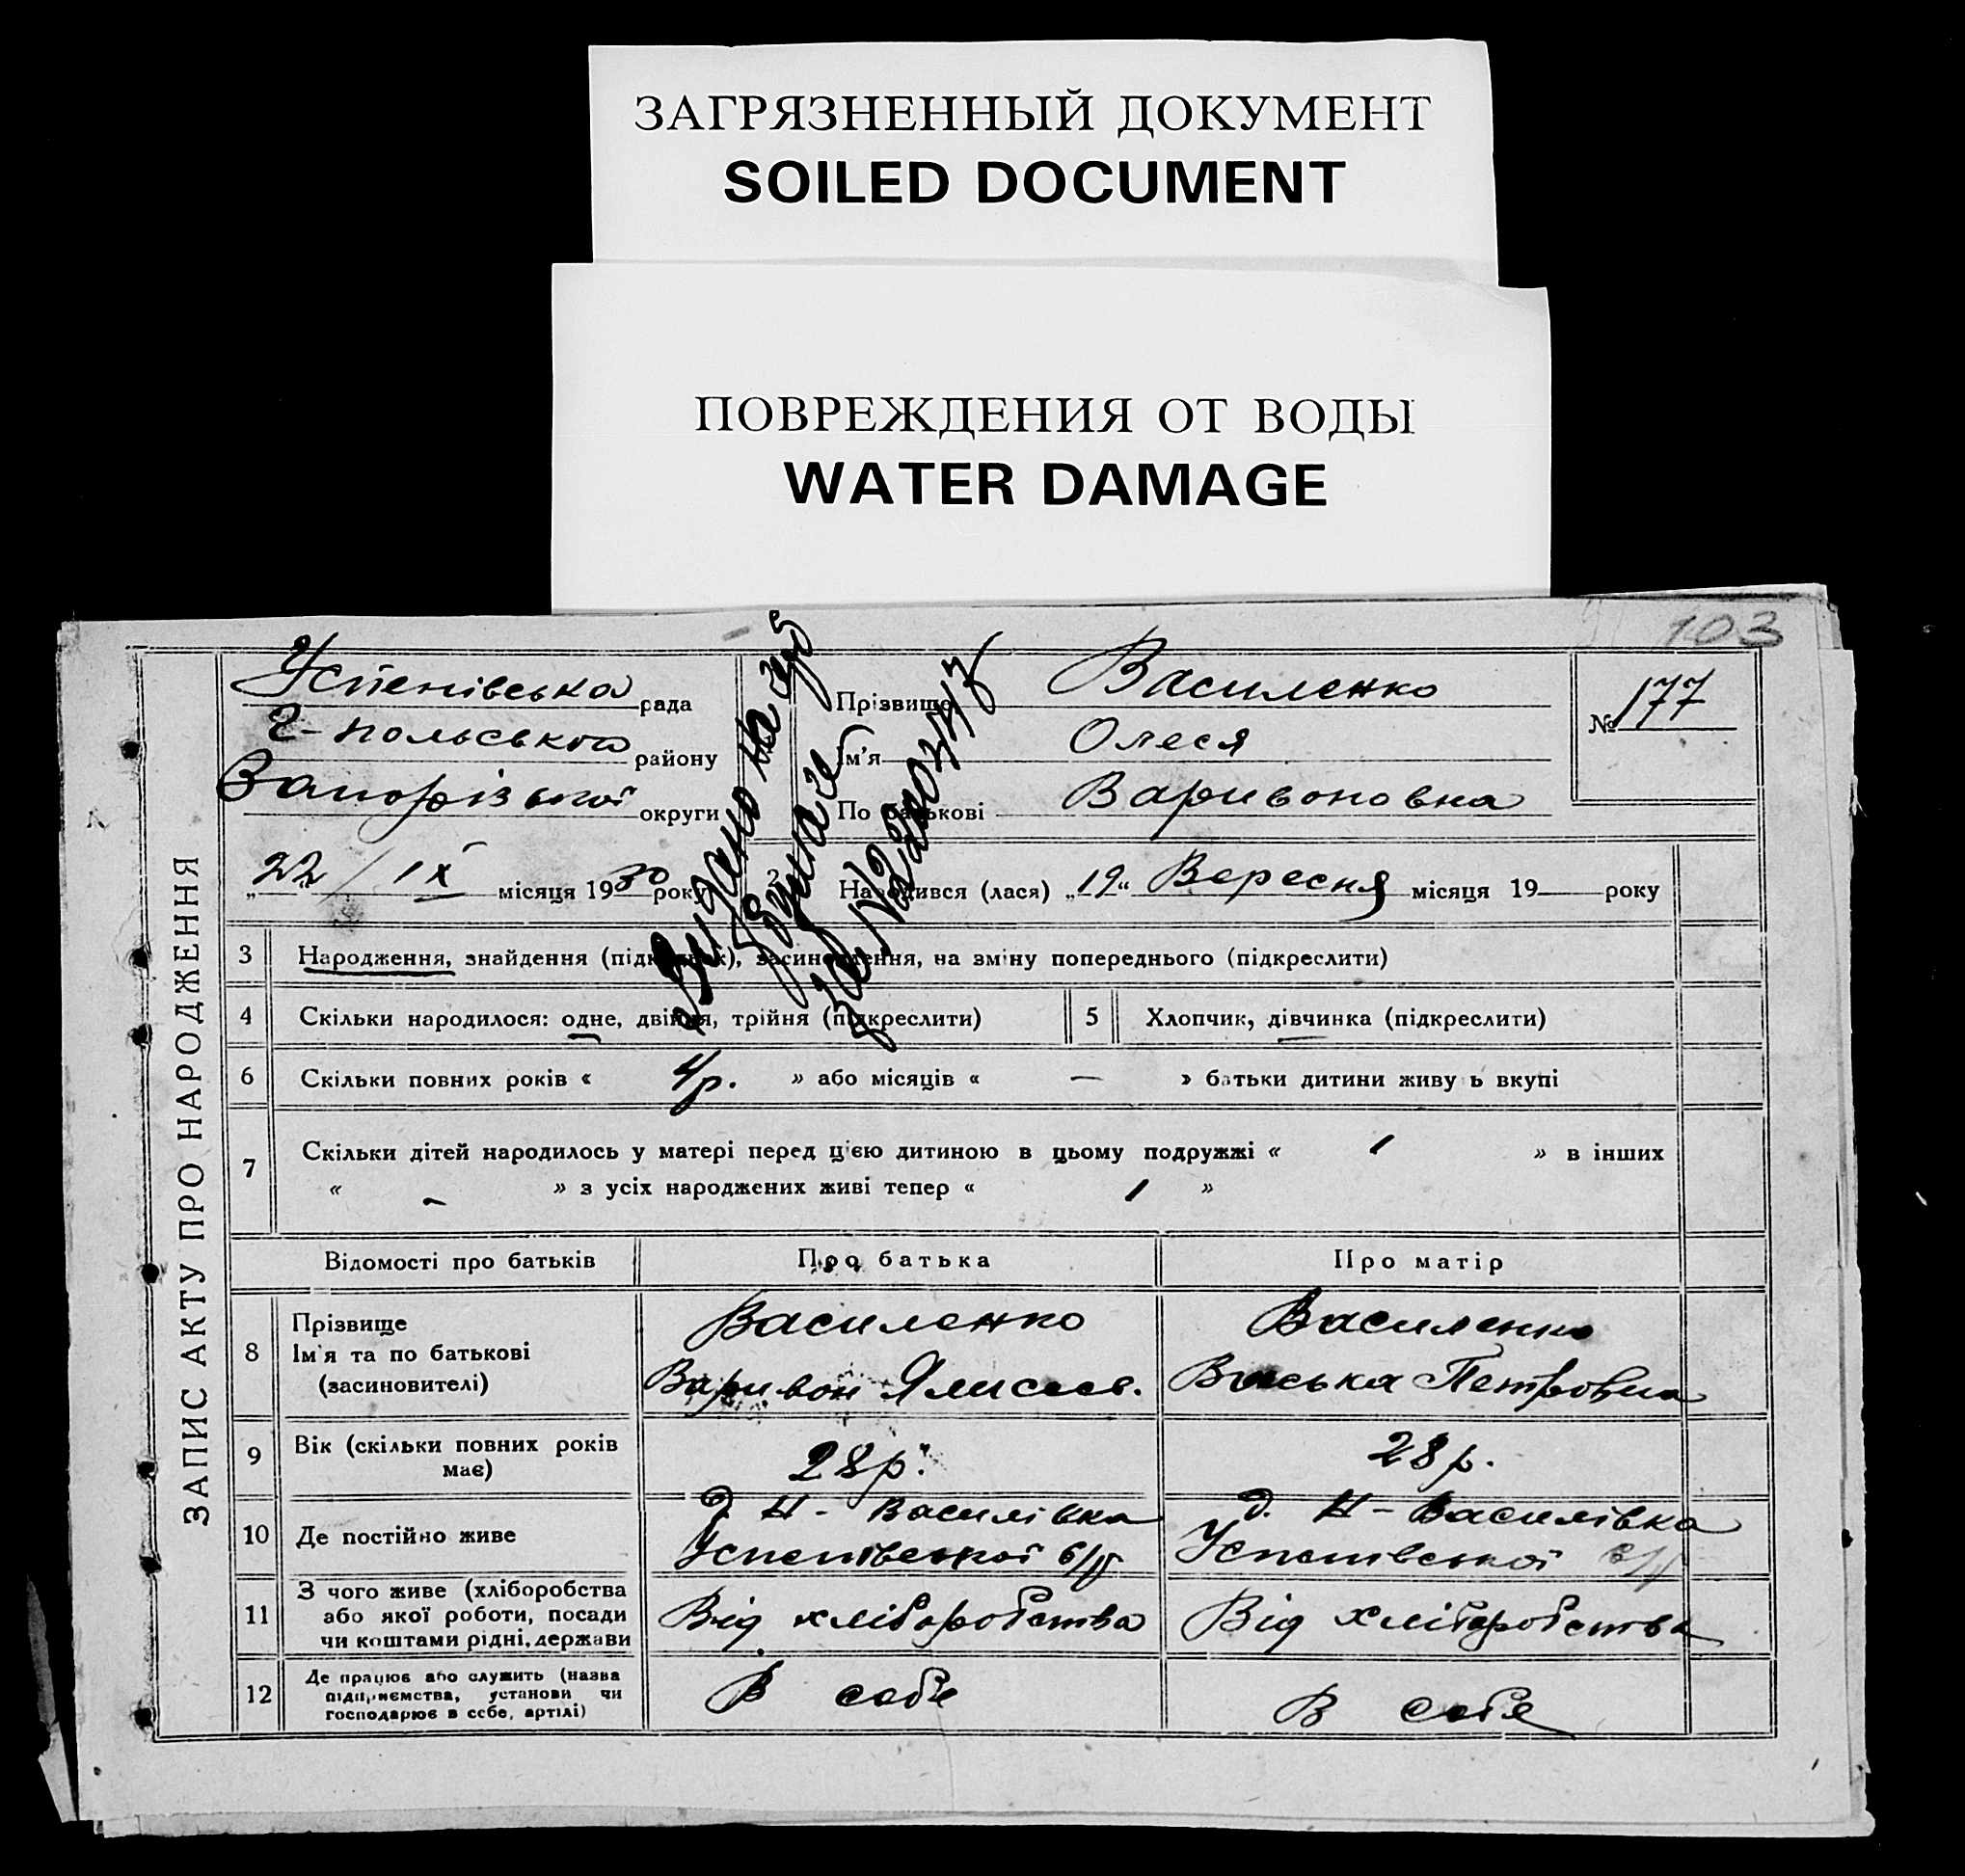 ЗАГРЯЗНЕННЫЙ ДОКУМЕНТ
SOILED DOCUMENT
ПОВРЕЖДЕНИЯ ОТ ВОДЫ
WATER DAMAGE
103
ЗАПИС АКТУ ПРО НАРОДЖЕННЯ
Успенівська рада
Г-польського району
Запорізької округи
Прізвище Василенко
Ім'я Олеся
По батькові Варивоновна
№ 177
„22 / IX місяця 1930 року
2 Народився (лася) „19“ Вересня місяця 19 року
Видано на
за №
3 Народження, знайдення (підкидьок), засиновлення, на зміну попереднього (підкреслити)
4 Скільки народилося: одне, двійня, трійня (підкреслити)
5 Хлопчик, дівчинка (підкреслити)
6 Скільки повних років « 4 р. » або місяців « — » батьки дитини живуть вкупі
7 Скільки дітей народилось у матері перед цією дитиною в цьому подружжі « 1 » в інших
« – » з усіх народжених живі тепер « 1 »
Відомості про батьків Про батька Про матір
8 Прізвище
Ім'я та по батькові
(засиновителі)
Василенко
Варивон
Василенко
Петровна
9 Вік (скільки повних років
має)
28 р.
28 р.
10 Де постійно живе
д. Н - Василівка
Успенівської с/р
д. Н - Василівка
Успенівської с/р
11 З чого живе (хліборобства
або якої роботи, посади
чи коштами рідні, держави
Від хліборобства
Від хліборобства
12 Де працює або служить (назва
підприємства, установи чи
господарює в себе, артілі)
В себе
В себе